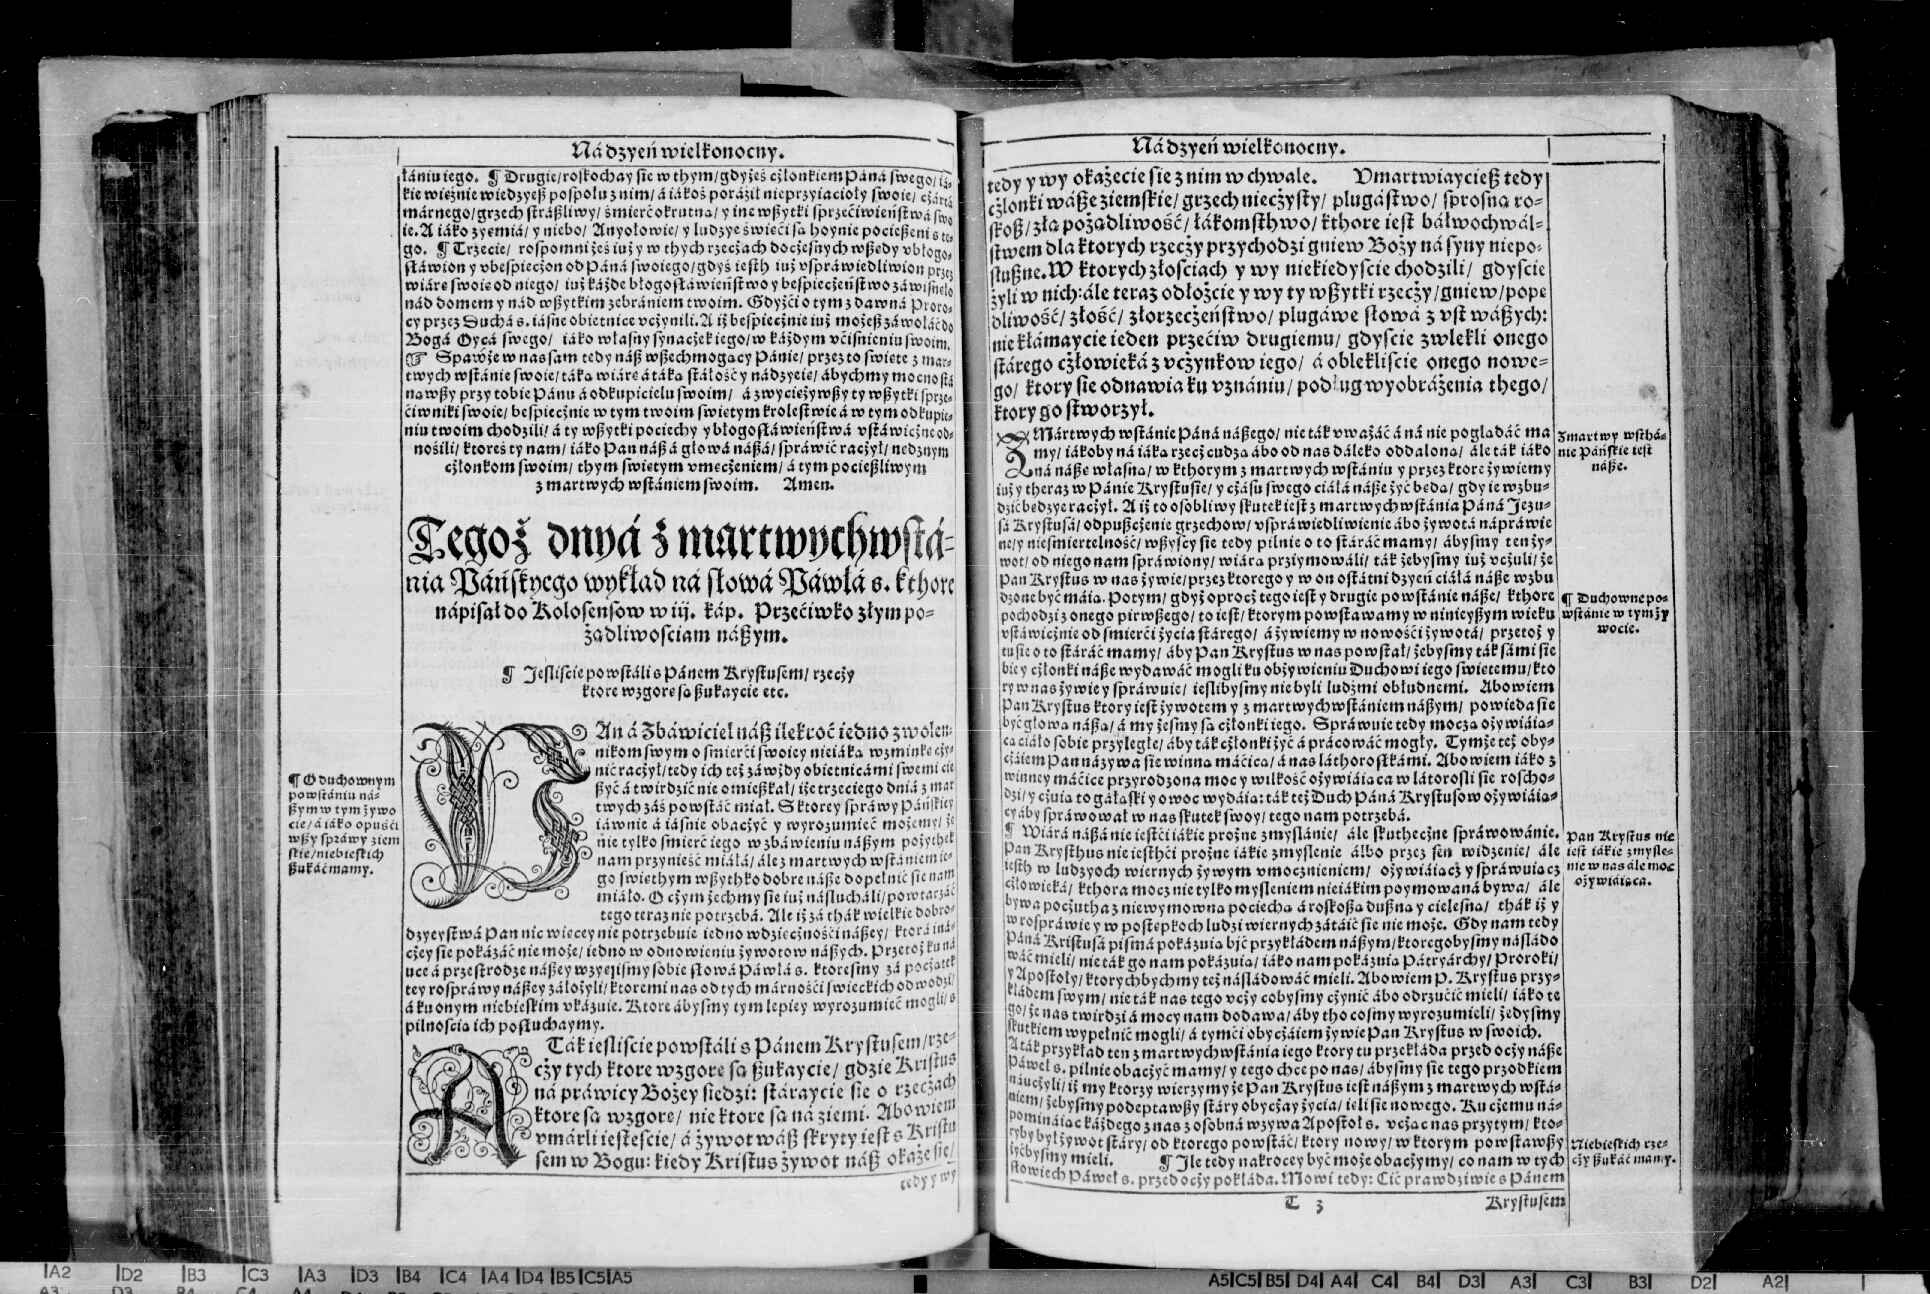 Ná dzyeń wielkonocny.
łániu iego. ¶ Drugie/ roskochay sie w thym/ gdyżeś cżlonkiem Páná swego/ iá-
kie wieżnie wiedzyeß pospołu z nim/ á iákoś poráził nieprzyiacioły swoie/ cżártá
márnego/ grzech stráßliwy/ śmierć okrutna/ y ine wßytki sprzećiwieństwá swo
ie. A iáko zyemiá/ y niebo/ Anyołowie/ y ludzye świeći sa hoynie pocießeni s te-
go. ¶ Trzecie/ rospomni żeś iuż y w thych rzecżach docżesnych wßedy vbłogo-
sławion y vbespiecżon od Páná swoiego/ gdyś iesth iuż vspráwiedliwion przez
wiáre swoie od niego/ iuż káżde błogosławieństwo y bespiecżeństwo záwisneło
nád domem y nád wßytkim zebrániem twoim. Gdyżći o tym z dawná Proro-
cy przez Duchá s. iásne obietnice vcżynili. A iż bespiecżnie iuż możeß záwołáć do
Bogá Oycá swego/ iáko własny synacżek iego/ w káżdym vćiśnieniu swoim.
☞ Spawże w nas sam tedy náß wßechmogacy Pánie/ przez to świete z mar-
twych wstánie swoie/ táka wiáre á táka stáłość y nádzyeie/ ábychmy mocno stá
nawßy przy tobie Pánu á odkupicielu swoim/ á zwyciężywßy ty wßytki sprze-
ćiwniki swoie/ bespiecżnie w tym twoim swietym krolestwie á w tym odkupie-
niu twoim chodzili/ á ty wßytki pociechy y błogosławieństwá vstáwicżne od-
nośili/ ktoreś ty nam/ iáko Pan náß á głowá náßá/ spráwić racżył/ nedznym
cżłonkom swoim/ thym swietym vmecżeniem/ á tym pocießliwym
z martwych wstániem swoim. Amen.
Tegoż dnyá z martwychwstá-
nia Páńskyego wykład ná słowá Páwłá s. kthore
nápisał do Kolosensow w iij. káp. Przećiwko złym po-
żadliwosciam náßym.
¶ Iesliscie powstáli s Pánem Krystusem/ rzecży
ktore wzgore sa ßukaycie etc.
¶ O duchownym
powstániu ná-
ßym w tym żywo
cie/ á iáko opuśći
wßy spráwy ziem
skie/ niebieskich
ßukáć mamy.
An á Zbáwiciel náß ilekroć iedno zwolen-
nikom swym o śmierći swoiey nieiáka wzminke cży-
nić racżył/ tedy ich też záwżdy obietnicámi swemi cie
ßyć á twirdzić nie omießkał/ iże trzeciego dniá z mar
twych záś powstáć miał. S ktorey spráwy Páńskiey
iáwnie á iásnie obacżyć y wyrozumieć możemy/ że
nie tylko śmierć iego w zbáwieniu náßym pożythek
nam przynieść miáłá/ ále z martwych wstániem ie-
go swiethym wßythko dobre náße dopełnić sie nam
miáło. O cżym żechmy sie iuż násłucháli/ powtarzáć
tego teraz nie potrzebá. Ale iż zá thák wielkie dobro-
dzyeystwá Pan nic wiecey nie potrzebuie iedno wdziecżnośći náßey/ ktora iná-
cżey sie pokázáć nie może/ iedno w odnowieniu żywotow náßych. Przetoż ku ná
uce á przestrodze náßey wzyeliśmy sobie słowá Páwłá s. ktoresmy zá pocżatek
tey rospráwy náßey záłożyli/ ktoremi nas od tych márnośći swieckich odwodzi/
á ku onym niebieskim vkázuie. Ktore ábysmy tym lepiey wyrozumieć mogli/ s
pilnoscia ich posłuchaymy.
A Ták iesliscie powstáli s Pánem Krystusem/ rze-
cży tych ktore wzgore sa ßukaycie/ gdzie Kristus
ná práwicy Bożey siedzi: stáraycie sie o rzecżach
ktore sa wzgore/ nie ktore sa ná ziemi. Abowiem
vmárli iestescie/ á żywot wáß skryty iest s Kristu
sem w Bogu: kiedy Kristus żywot náß okaże sie/
tedy y wy
Ná dzyeń wielkonocny.
tedy y wy okażecie sie z nim w chwale. Vmartwiaycieß tedy
cżłonki wáße ziemskie/ grzech niecżysty/ plugástwo/ sprosna ro-
skoß/ zła pożadliwość/ łákomsthwo/ kthore iest báłwochwál-
stwem dla ktorych rzecży przychodzi gniew Boży ná syny niepo-
słußne. W ktorych złosciach y wy niekiedyscie chodzili/ gdyscie
żyli w nich: ále teraz odłożcie y wy ty wßytki rzecży/ gniew/ pope
dliwość/ złość/ złorzecżeństwo/ plugáwe słowá z vst wáßych:
nie kłamaycie ieden przećiw drugiemu/ gdyscie zwlekli onego
stárego cżłowieká z vcżynkow iego/ á oblekliscie onego nowe-
go/ ktory sie odnawia ku vznániu/ podług wyobráżenia thego/
ktory go stworzył.
Z Mártwych wstánie Páná náßego/ nie ták vważáć á ná nie pogladáć ma
my/ iákoby ná iáka rzecż cudza ábo od nas dáleko oddalona/ ále ták iáko
ná náße własna/ w kthorym z martwych wstániu y przez ktore żywiemy
iuż y theraz w Pánie Krystusie/ y cżásu swego ciáłá náße żyć beda/ gdy ie wzbu-
dzić bedzye racżył. A iż to osobliwy skutek iest z martwych wstánia Páná Jezu-
sá Krystusá/ odpußcżenie grzechow/ vspráwiedliwienie ábo żywotá nápráwie
nie/ y nieśmiertelność/ wßyścy sie tedy pilnie o to stáráć mamy/ ábysmy ten ży-
wot/ od niego nam spráwiony/ wiára przyimowáli/ ták żebysmy iuż vcżuli/ że
Pan Krystus w nas żywie/ przez ktorego y w on ostátni dzyeń ciáłá náße wzbu
dzone być máia. Potym/ gdyż oprocż tego iest y drugie powstánie náße/ kthore
pochodzi z onego pirwßego/ to iest/ ktorym powstawamy w ninieyßym wieku
vstáwicżnie od śmierći życia stárego/ á żywiemy w nowośći żywotá/ przetoż y
tu sie o to stáráć mamy/ áby Pan Krystus w nas powstał/ żebysmy ták sámi sie
bie y cżłonki náße wydawáć mogli ku obżywieniu Duchowi iego swietemu/ kto
ry w nas żywie y spráwuie/ ieslibysmy nie byli ludźmi obłudnemi. Abowiem
Pan Krystus ktory iest żywotem y z martwychwstániem náßym/ powieda sie
być głowa náßa/ á my żesmy sa cżłonki iego. Spráwuie tedy mocza ożywiáia-
ca ciáło sobie przyległe/ áby ták cżłonki żyć á prácowáć mogły. Tymże też oby-
cżáiem Pan názywa sie winna máćica/ á nas láthorostkámi. Abowiem iáko z
winney máćice przyrodzona moc y wilkość ożywiáiaca w látorosli sie roscho-
dzi/ y cżuia to gáłaski y owoc wydáia: ták też Duch Páná Krystusow ożywiáia-
cy áby spráwował w nas skutek swoy/ tego nam potrzebá.
¶ Wiárá náßá nie iestći iákie prożne zmyslánie/ ále skuthecżne spráwowánie.
Pan Krysthus nie iesthći prożne iákie zmyslenie álbo przez sen widzenie/ ále
iesth w ludzyoch wiernych żywym vmocznieniem/ ożywiáiacż y spráwuiacż
cżłowieká/ kthora mocz nie tylko mysleniem nieiákim poymowaná bywa/ ále
bywa pocżutha z niewymowna pociecha á roskoßa dußna y cielesna/ thák iż y
w rospráwie y w postepkoch ludzi wiernych zátáić sie nie może. Gdy nam tedy
Páná Kristusá pismá pokázuia być przykłádem náßym/ ktoregobysmy násládo
wáć mieli/ nie ták go nam pokázuia/ iáko nam pokázuia Pátryárchy/ Proroki/
y Apostoły/ ktorychbychmy też násládowáć mieli. Abowiem P. Krystus przy-
kłádem swym/ nie ták nas tego vcży cobysmy cżynić ábo odrzućić mieli/ iáko te
go/ że nas twirdzi á mocy nam dodawa/ áby tho cosmy wyrozumieli/ żedysmy
skutkiem wypełnić mogli/ á tymći obycżáiem żywie Pan Krystus w swoich.
A ták przykład ten z martwychwstánia iego ktory tu przekłáda przed ocży náße
Páweł s. pilnie obacżyć mamy/ y tego chce po nas/ ábysmy sie tego przodkiem
náucżyli/ iż my ktorzy wierzymy że Pan Krystus iest náßym z martwych wstá-
niem/ żebysmy podeptawßy stáry obycżay życia/ ieli sie nowego. Ku cżemu ná-
pomináiac káżdego z nas z osobná wzywa Apostoł s. vcżac nas przy tym/ kto-
ryby był żywot stáry/ od ktorego powstáć/ ktory nowy/ w ktorym powstawßy
żyćbysmy mieli. ¶ Ile tedy nakrocey być może obacżymy/ co nam w tych
słowiech Páweł s. przed ocży pokłáda. Mowi tedy: Cić prawdziwie s Pánem
Zmartwy wsthá-
nie Páńskie iest
náße.
¶ Duchowne po-
wstánie w tym ży
wocie.
Pan Krystus nie
iest iákie zmysle-
nie w nas ále moc
ożywiáiaca.
Niebieskich rze-
cży ßukáć mamy.
T 3
Krystusem
A2 D2 B3 C3 A3 D3 B4 C4 A4 D4 B5 C5 A5
A5 C5 B5 D4 A4 C4 B4 D3 A3 C3 B3 D2 A2